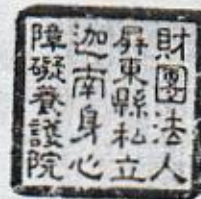 財團法人
屏東縣私立
迦南身心
障礙養護院